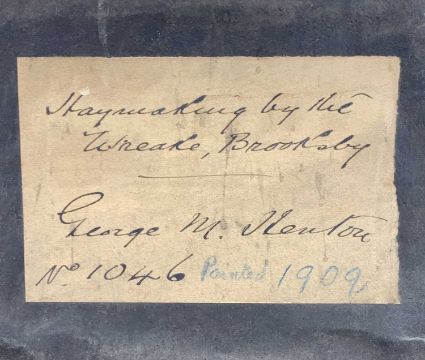 Haymaking by the
Wreake, Brooksby
George M. Henton
No 1046 Painted 1909